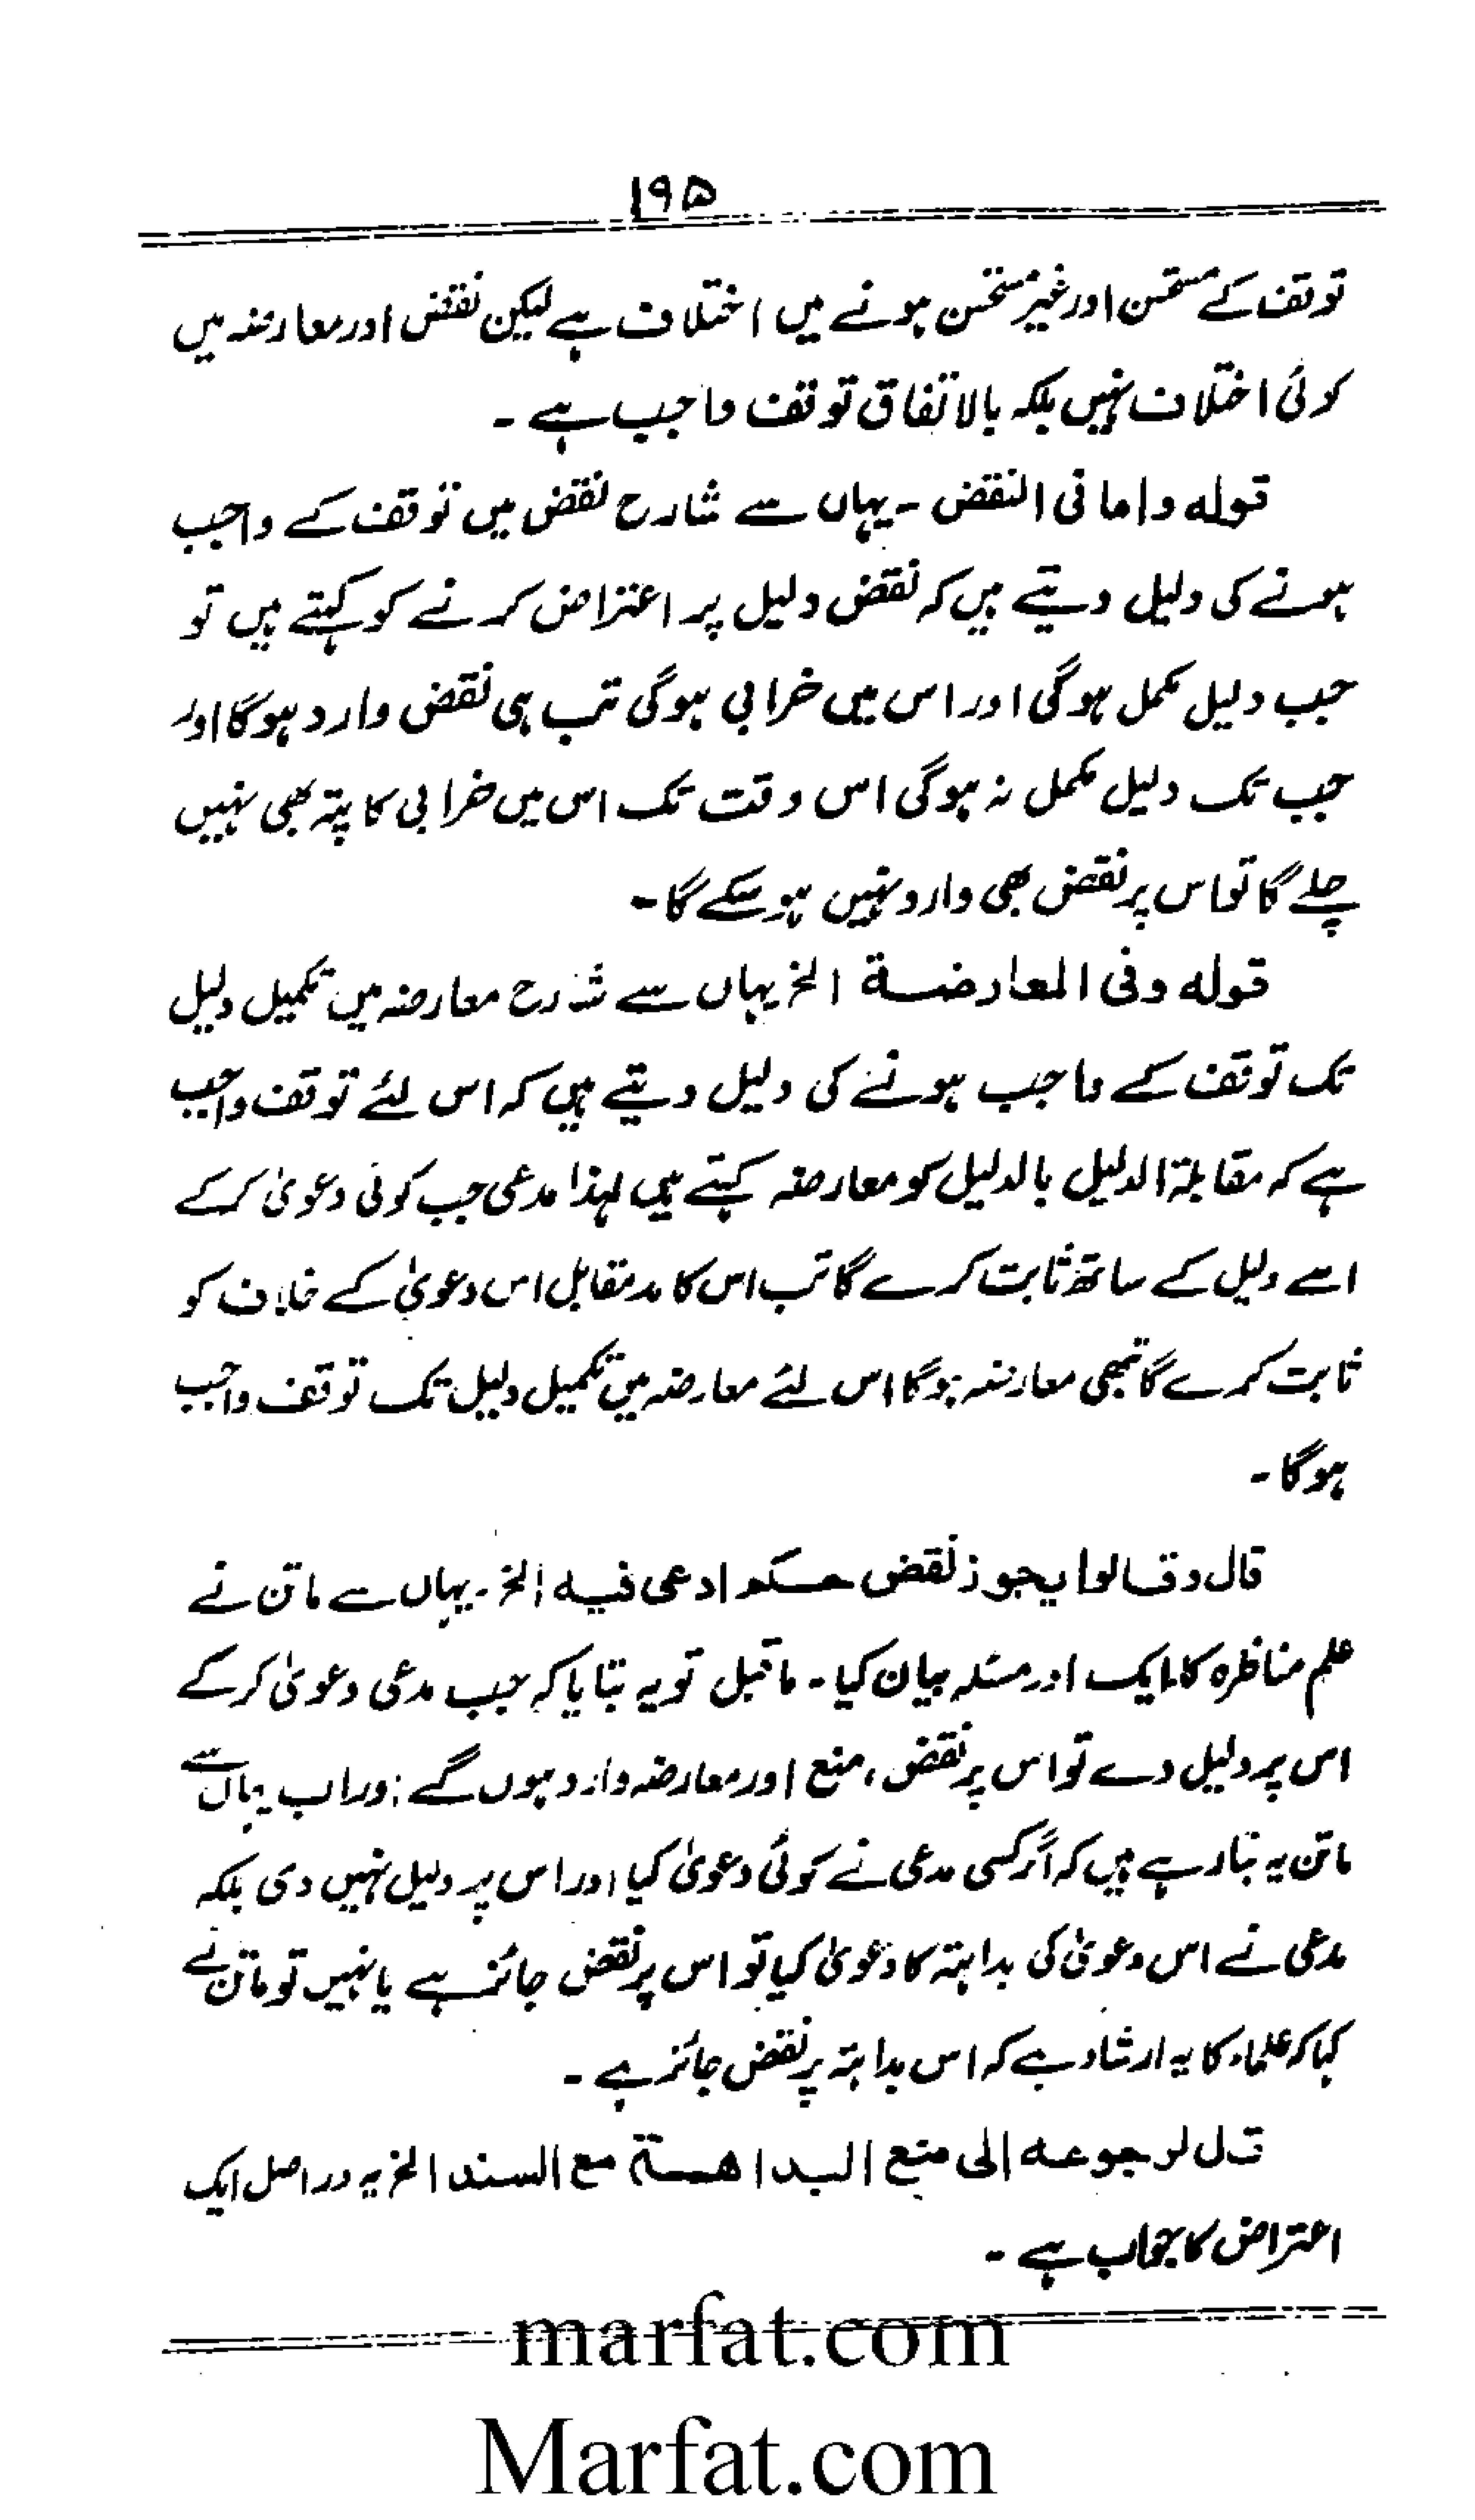 ۱۹۵
توقف کے مستحسن اور غیر مستحسن ہونے میں اختلاف ہے لیکن نقض اور معارضہ میں
کوئی اختلاف نہیں بلکہ بالاتفاق توقف واجب ہے ۔
قولہ واما فی النقض ۔ یہاں سے شارح نقض میں توقف کے واجب
ہونے کی دلیل دیتے ہیں کہ نقض دلیل پر اعتراض کرنے کو کہتے ہیں تو
جب دلیل مکمل ہوگی اور اس میں خرابی ہوگی تب ہی نقض وارد ہوگا اور
جب تک دلیل مکمل نہ ہوگی اس وقت تک اس میں خرابی کا پتہ بھی نہیں
چلے گا تو اس پر نقض بھی وارد نہیں ہو سکے گا ۔
قولہ وفی المعارضۃ الخ یہاں سے شارح معارضہ میں تکمیل دلیل
تک توقف کے واجب ہونے کی دلیل دیتے ہیں کہ اس لئے توقف واجب
ہے کہ مقابلۃ الدلیل بالدلیل کو معارضہ کہتے ہیں لہذا مدعی جب کوئی دعویٰ کرکے
اسے دلیل کے ساتھ ثابت کرے گا تب اس کا مدمقابل اس دعویٰ کے خلاف کو
ثابت کرے گا تبھی معارضہ ہوگا اس لئے معارضہ میں تکمیل دلیل تک توقف واجب
ہوگا ۔
قال وقالوا یجوز نقض حکم ادعی فیہ الخ ۔ یہاں سے ماتن نے
علم مناظرہ کا ایک اور مسئلہ بیان کیا ۔ ماقبل تو یہ بتایا کہ جب مدعی دعویٰ کرکے
اس پر دلیل دے تو اس پر نقض ، منع اور معارضہ وارد ہوں گے اور اب یہاں سے
ماتن یہ بتا رہے ہیں کہ اگر کسی مدعی نے کوئی دعویٰ کیا اور اس پر دلیل نہیں دی بلکہ
مدعی نے اس دعویٰ کی بداہتہ کا دعویٰ کیا تو اس پر نقض جائز ہے یا نہیں تو ماتن نے
کہا کہ علماء کا یہ ارشاد ہے کہ اس بداہتہ پر نقض جائز ہے ۔
قال لرجوعہ الی منع البداھۃ مع السند الخ یہ دراصل ایک
اعتراض کا جواب ہے ۔
marfat.com
Marfat.com